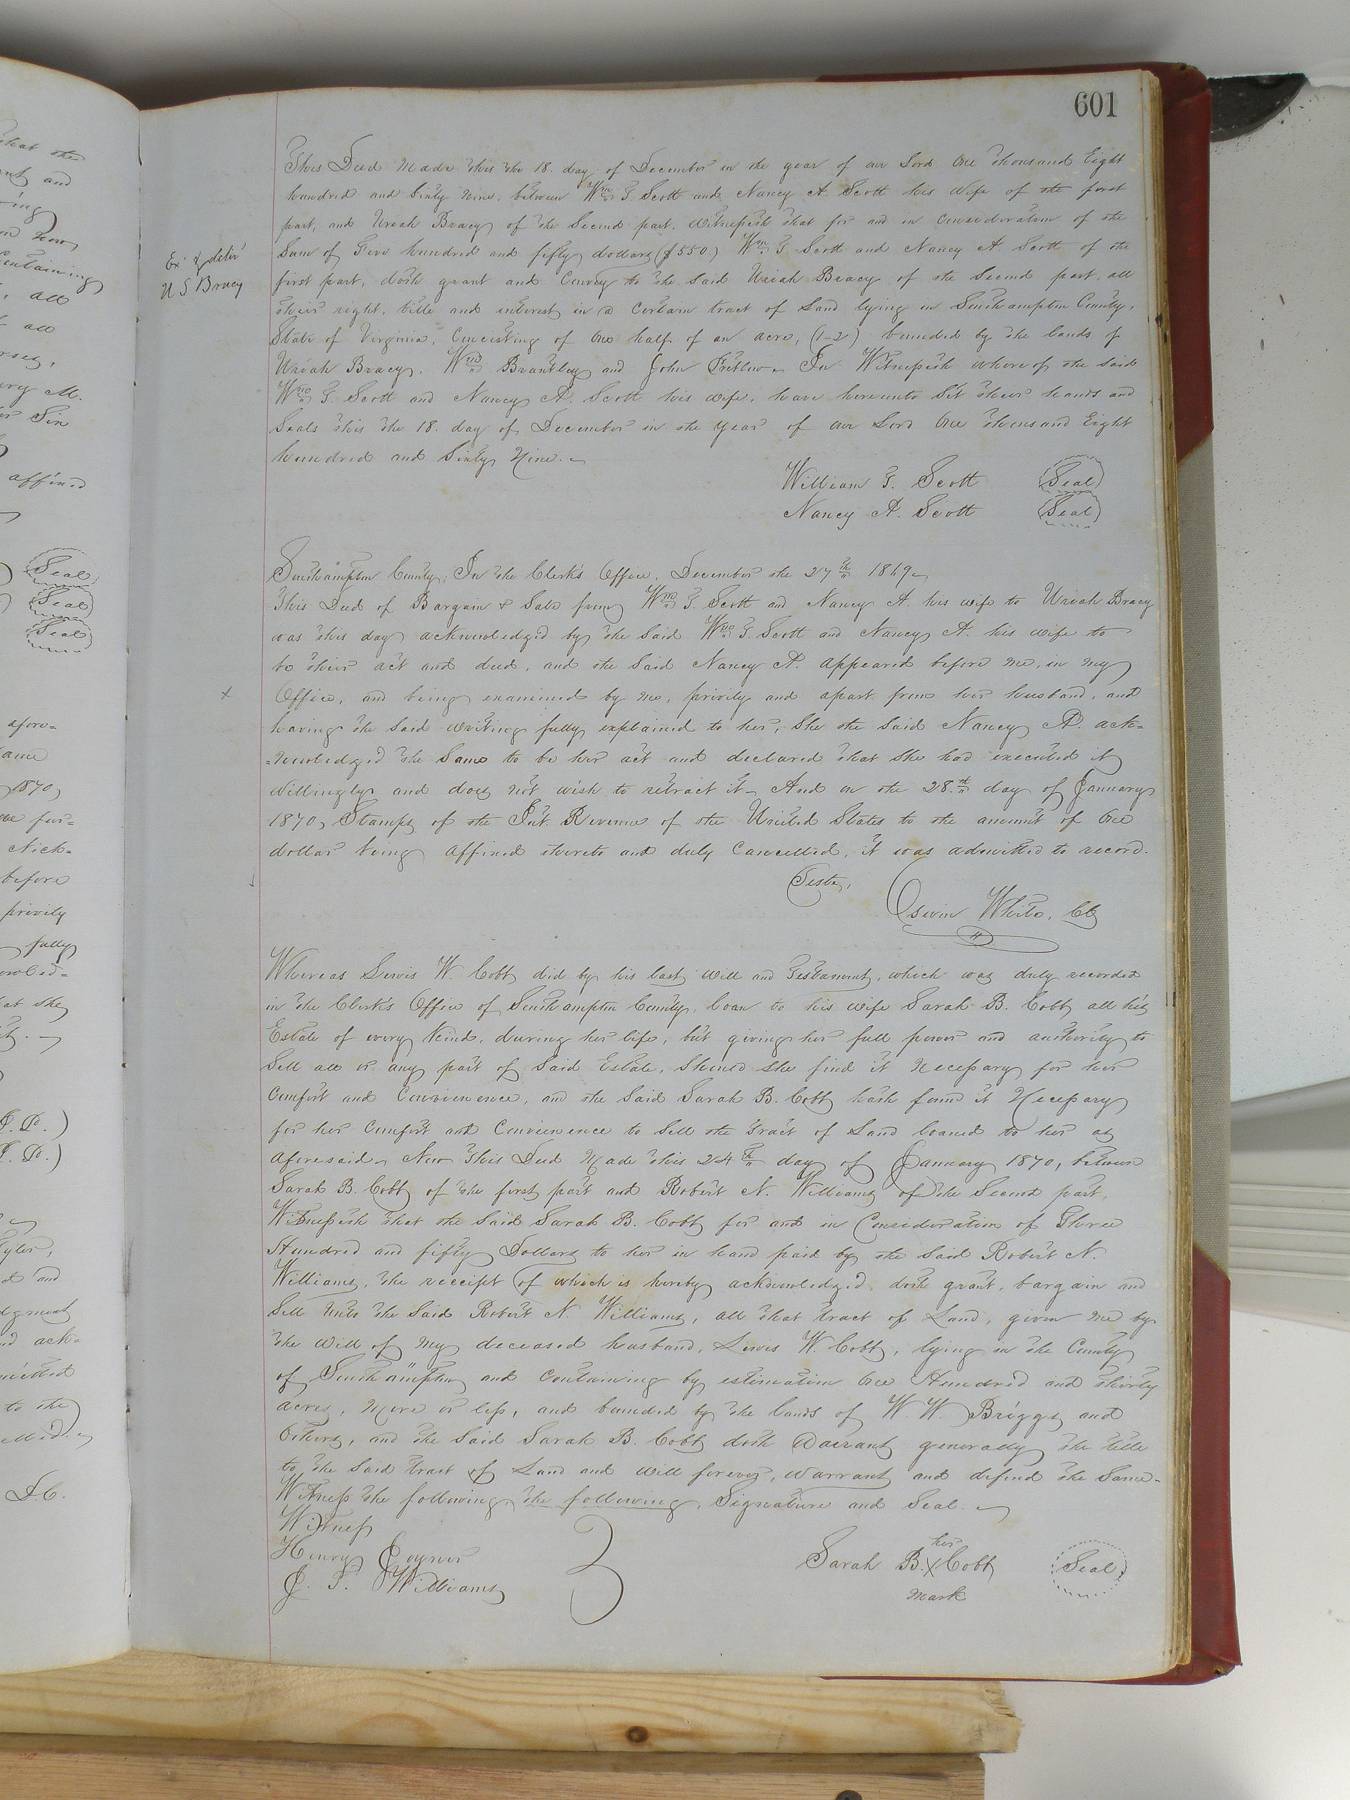 601
This Deed Made this the 18. day of December in the year of our Lord One thousand Eight
hundred and Sixty Nine, between Wm T. Scott and Nancy A. Scott his Wife of the first
part, and Uriah Bracy of the Second part. Witnesseth that for and in consideration of the
Sum of Five hundred and fifty dollars ($550) Wm T. Scott and Nancy A Scott of the
first part, doth grant and Convey to the said Uriah Bracy of the Second part, all
their right, title and interest in a Certain tract of Land lying in Southampton County,
State of Virginia, Concisting of One half of an acre, (1-2) bounded by the lands of
Uriah Bracy, Wm Brantley and John Pretlow. In Witnesseth whereof the said
Wm T. Scott and Nancy A. Scott his wife, have hereunto Set their hands and
Seals this the 18. day of December in the year of our Lord One thousand Eight
hundred and Sixty Nine.
Ex. & deliv
U S Bracy
William T. Scott (Seal)
Nancy A. Scott (Seal)
Southampton County; In the Clerk's Office, December the 27th 1869
This Deed of Bargain & Sale from Wm T. Scott and Nancy A. his wife to Uriah Bracy
was this day acknowledged by the Said Wm T. Scott and Nancy A. his wife to
be their act and deed, and the said Nancy A. appeared before me, in my
Office, and being examined by me, privily and apart from her husband, and
having the said writing fully explained to her, She the said Nancy A. ack-
-nowledged the Same to be her act and declared that She had executed it
willingly and does not wish to retract it. And on the 28.th day of January
1870, Stamps of the Int. Revenue of the United States to the amount of One
dollar being affixed thereto and duly Cancelled, it was admitted to record.
Teste,
Oswin White, Clk
Whereas Lewis W Cobb did by his last will and Testament, which was duly recorded
in the Clerk's Office of Southampton County, loan to his wife Sarah B. Cobb all his
Estate of every Kind, during her life, but giving her full power and authority to
Sell all or any part of Said Estate, Should She find it Necessary for her
Comfort and Convenience, and the Said Sarah B. Cobb hath found it Necessary
for her Comfort and Convenience to Sell the tract of Land loaned to her as
aforesaid. Now This Deed Made this 24th day of January 1870, between
Sarah B. Cobb of the first part and Robert N. Williams of the Second part,
Witnesseth that the Said Sarah B. Cobb for and in Consideration of Three
Hundred and fifty Dollars to her in hand paid by the Said Robert N.
Williams, the receipt of which is hereby acknowledged, doth grant, bargain and
Sell unto the Said Robert N. Williams, all that tract of Land, given me by
the will of my deceased husband, Lewis W. Cobb, lying in the County
of Southampton and containing by estimation One Hundred and thirty
acres, more or less, and bounded by the lands of W. W. Briggs and
Others, and the Said Sarah B. Cobb doth Warrant generally the title
to the Said tract of Land and will forever, warrant and defend the Same.
Witness the following, the following, Signature and Seal.
Witness
Henry Joyner
J. T. Williams
her
Sarah B. X Cobb (Seal)
mark